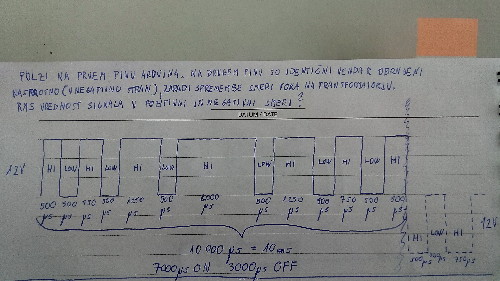 PULZI NA PRVEM PINU ARDUINA. NA DRUGEM PINU SO IDENTIČNI VENDAR OBRNJENI
NASPROTNO (V NEGATIVNO STRAN), ZARADI SPREMEMBE SMERI TOKA NA TRANSFORMATORJU.
RMS VREDNOST SIGNALA V POZITIVNI IN NEGATIVNI SMERI?
DATUM / DATE
12V HI LOW HI LOW HI LOW HI LOW HI LOW HI LOW HI
500 500 750 500 1250 500 2000 500 1250 500 750 500 500
µs µs µs µs µs µs µs µs µs µs µs µs µs
HI LOW HI 12V
500 µs 500 µs 750 µs
10 000 µs = 10 ms
7000 µs ON 3000 µs OFF